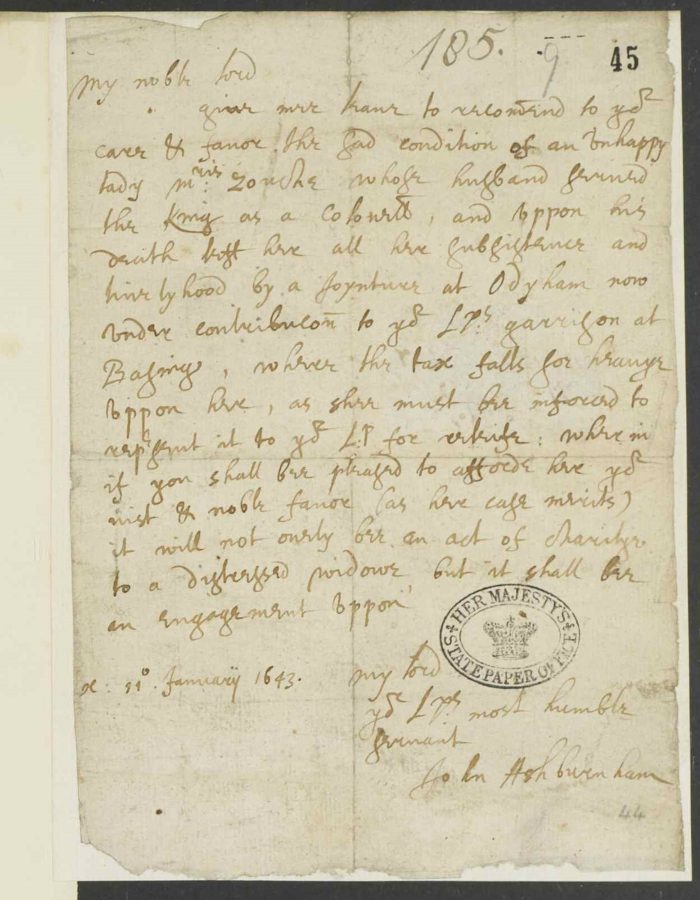 185.
9
45
My noble lord
giue mee leaue to recom̄end to yor
care & favor the sad condition of an vnhappy
lady mris: Zouche whose husband serued
the King as a Colonell, and vppon his
death left her all her subsistence and
liuelyhood by a Joynture at Odyham now
vnder contribucōn to yor Lps: garrison at
Basing, wheree the tax falls soe heauye
vppon her, as shee must bee inforced to
represent it to yor Lp for releife: wherein
if you shall bee pleased to afforde her yor
iust & noble favor (as her case merits)
it will not onely bee an act of charitye
to a distressed widowe, but it shall bee
an engagement vppon
HER MAJESTY'S
STATE PAPER OFFICE
11o. January 1643.
my lord
yor Lps: most humble
seruant
John Ashburnham
44